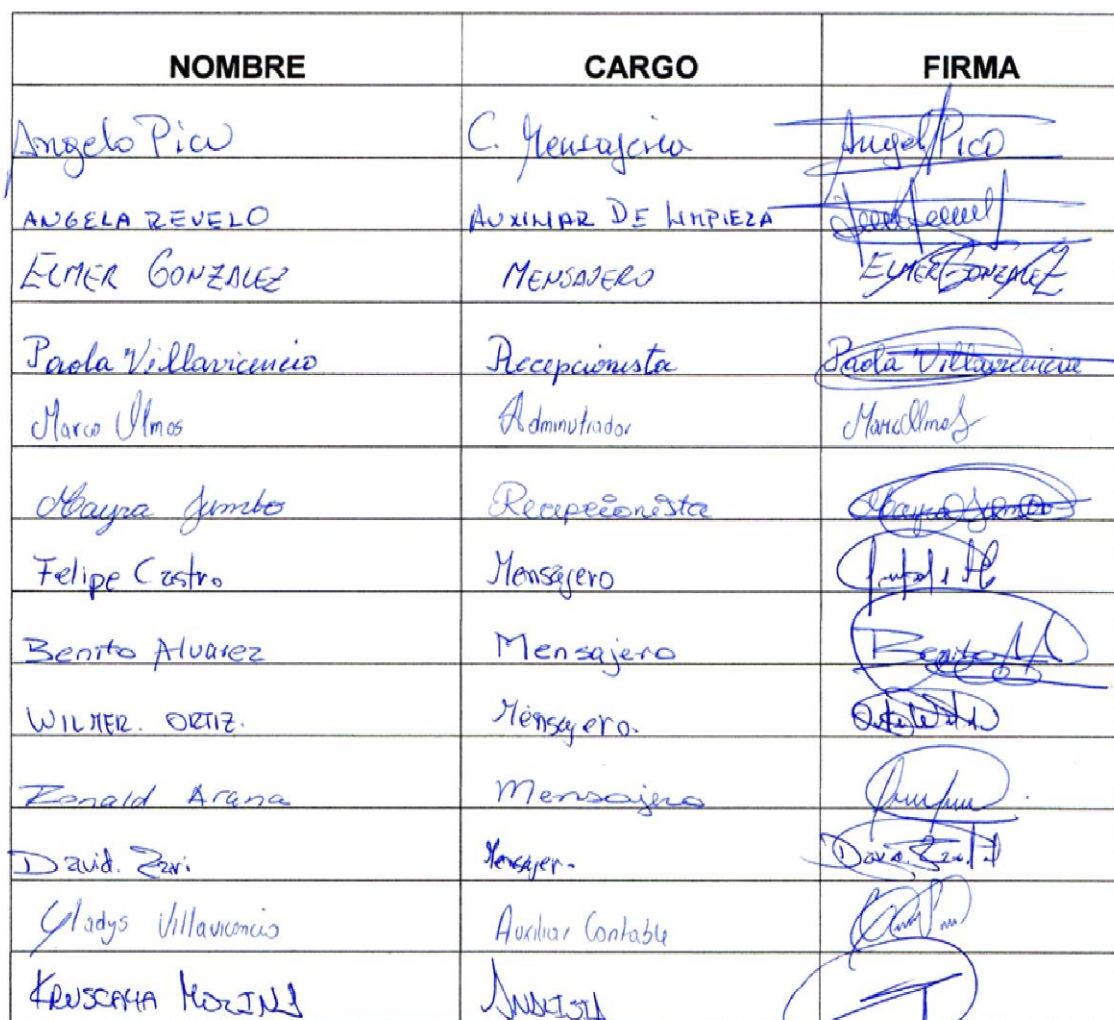 NOMBRE CARGO FIRMA
Angelo Pico C. Mensajeria Angel Pico
ANGELA REVELO AUXILIAR DE LIMPIEZA
ELMER GONZALEZ MENSAJERO ELMER GONZALEZ
Paola Villavicencio Recepcionista Paola Villavicencio
Marco Olmos Administrador Marco Olmos
Mayra Jumbo Recepcionista Mayra Jumbo
Felipe Castro Mensajero
Benito Alvarez Mensajero Benito
WILMER. ORTIZ. Mensajero.
Ronald Arana Mensajero
David. Zari. Mensajer. David. Zari
Gladys Villavicencio Auxiliar Contable
KRUSCAYA MOLINA ANALISTA